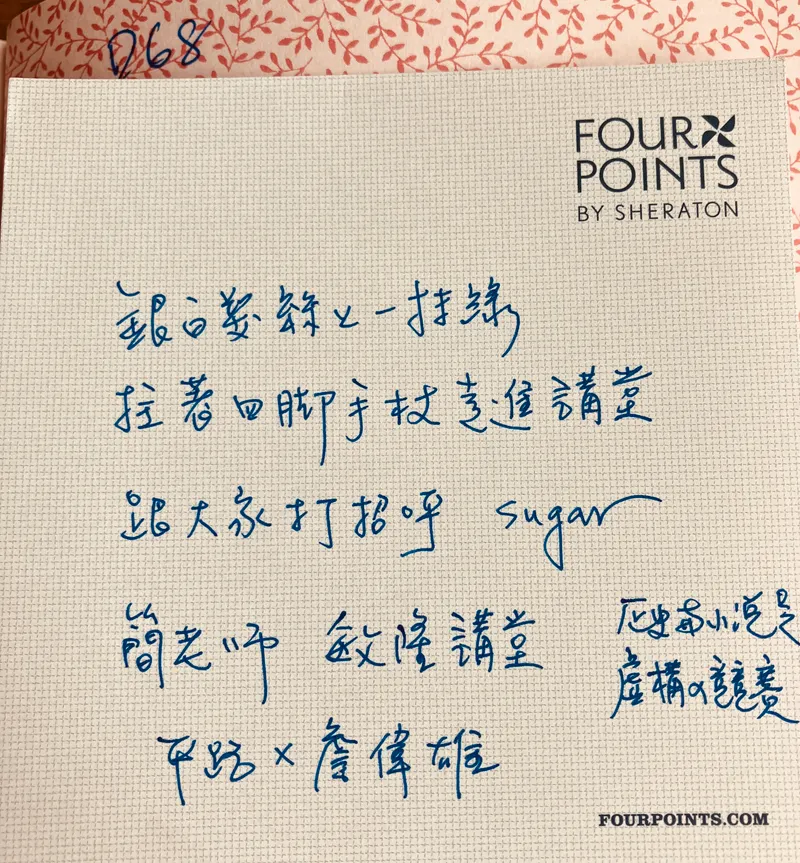 D68
FOUR POINTS
BY SHERATON
銀白髮絲上一抹綠
拄著四脚手杖走進講堂
跟大家打招呼 sugar
簡老師 敏隆講堂
小說是
虛構の競賽
平路 × 詹偉雄
FOURPOINTS.COM